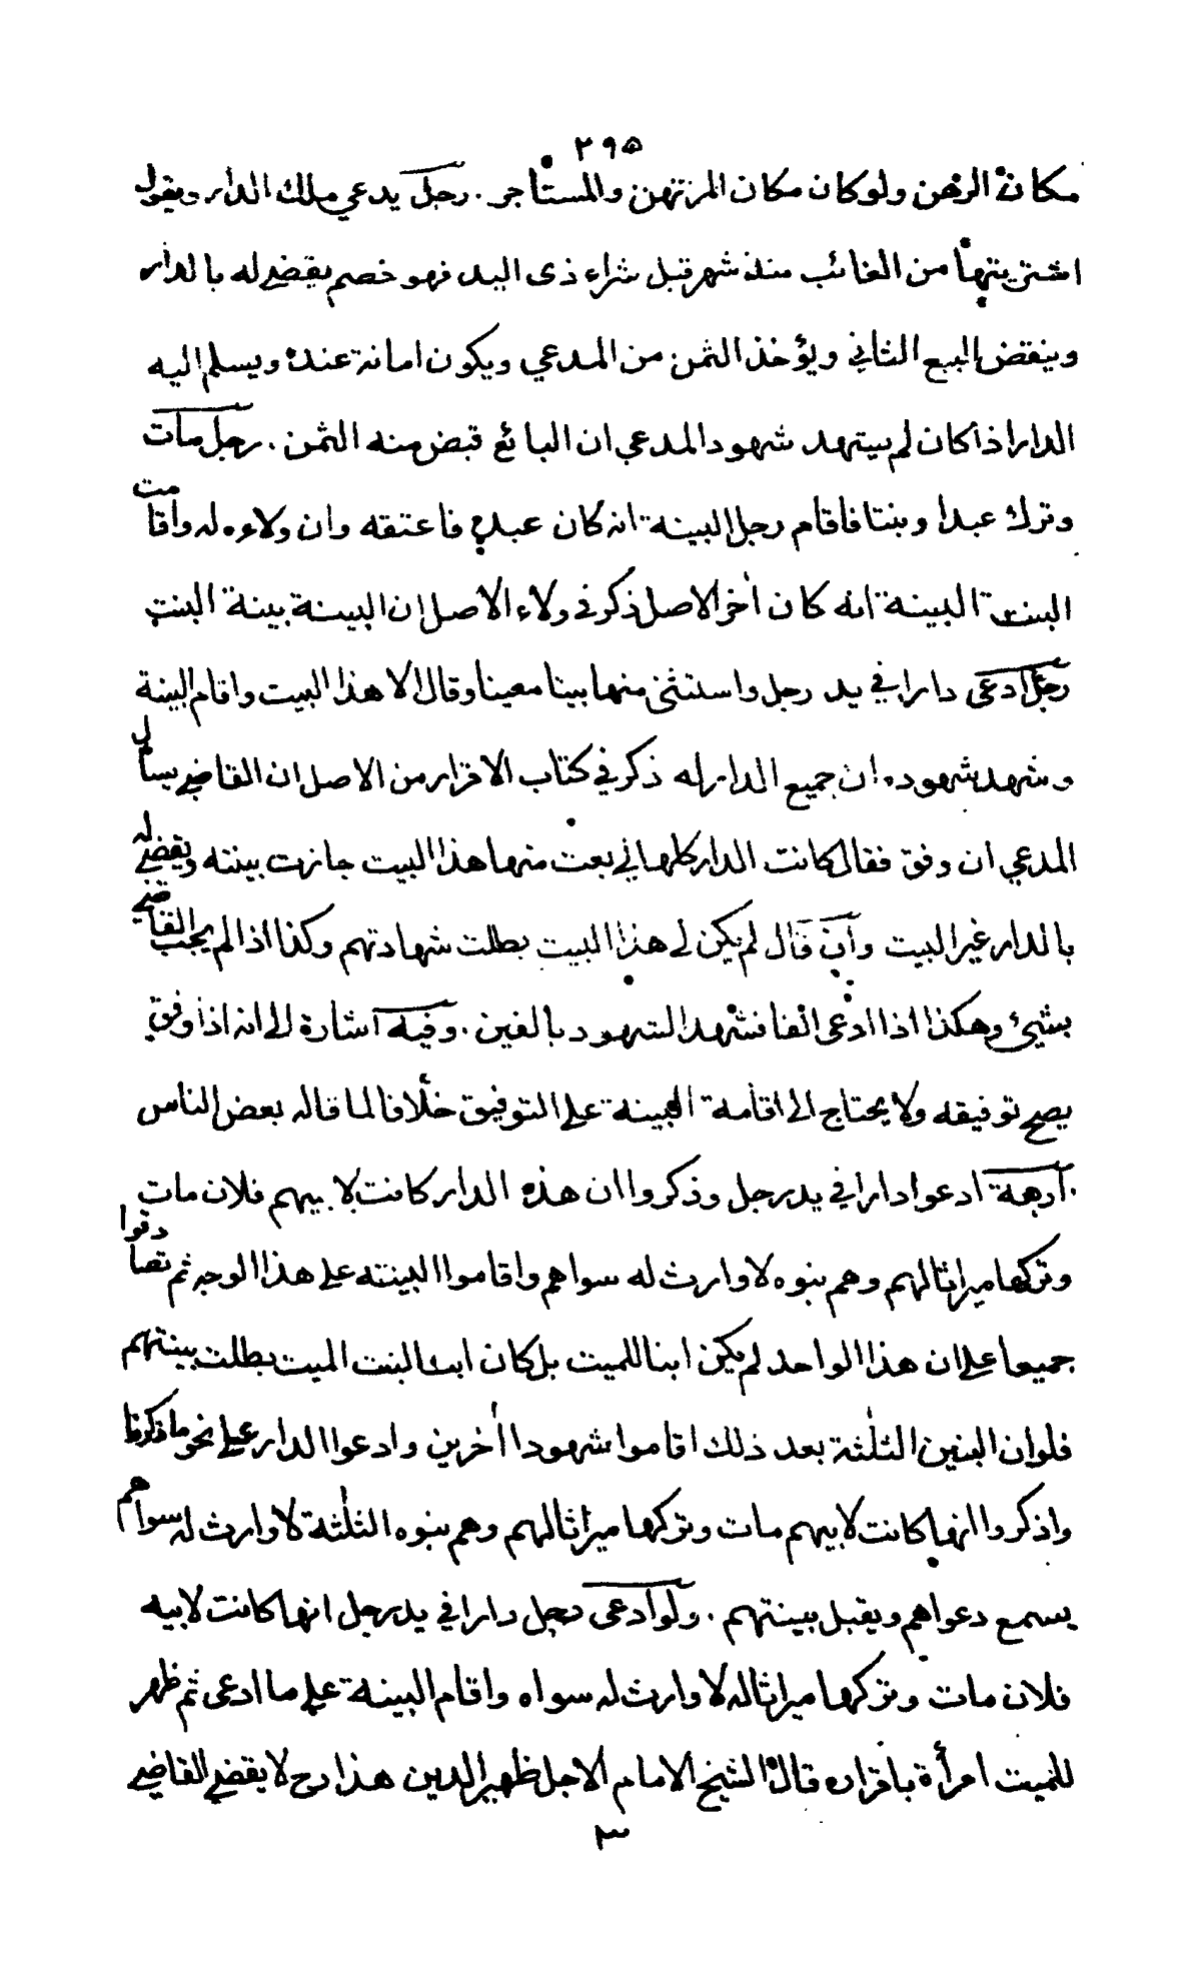 ٢٩٥
مكان الرهن ولو كان مكان المرتهن والمستأجر . رجل يدعي ملك الدار ويقول
اشتريتها من الغائب منذ شهر قبل شراء ذى اليد فهو خصم يقضي له بالدار
وينقض البيع الثاني ويؤخذ الثمن من المدعي ويكون امانة عنده ويسلم اليه
الدار اذا كان لم يشهد شهود المدعي ان البائع قبض منه الثمن . رجل مات
وترك عبدا وبنتا فاقام رجل البينة انه كان عبده فاعتقه وان ولاءه له واقامت
البنت البينة انه كان اخر الاصل ذكر في ولاء الاصل ان البينة بينة البنت
رجل ادعى دارا في يد رجل واستثنى منها بيتا معينا وقال الا هذا البيت واقام البينة
وشهد شهوده ان جميع الدار له ذكر في كتاب الاقرار من الاصل ان القاضي يسأل
المدعي ان وفق فقال كانت الدار كلها لي بعت منها هذا البيت جازت بينته ويقضي له
بالدار غير البيت وان قال لم يكن لي هذا البيت بطلت شهادتهم وكذا اذا لم يجب القاضي
بشيئ وهكذا اذا ادعى الفا فشهد الشهود بالفين . وفيه اشارة الى انه اذا وفق
يصح توفيقه ولا يحتاج الى اقامة البينة على التوفيق خلافا لما قاله بعض الناس
. اربعة ادعوا دارا في يد رجل وذكروا ان هذه الدار كانت لابيهم فلان مات
وتركها ميراثا لهم وهم بنوه لا وارث له سواهم واقاموا البينته على هذا الوجه ثم تصادقوا
جميعا على ان هذا الواحد لم يكن ابنا للميت بل كان ابن البنت الميت بطلت بينتهم
فلو ان البنين الثلثة بعد ذلك اقاموا شهودا أخرين وادعوا الدار على نحو ما ذكرنا
واذكروا انها كانت لابيهم مات وتركها ميراثا لهم وهم بنوه الثلثة لا وارث له سواهم
يسمع دعواهم ويقبل بينتهم . ولو ادعى رجل دارا في يد رجل انها كانت لابيه
فلان مات وتركها ميراثا له لا وارث له سواه واقام البينة على ما ادعى ثم ظهر
للميت امرأة باقراره قال الشيخ الامام الاجل ظهير الدين هذا رح لا يقضي القاضي